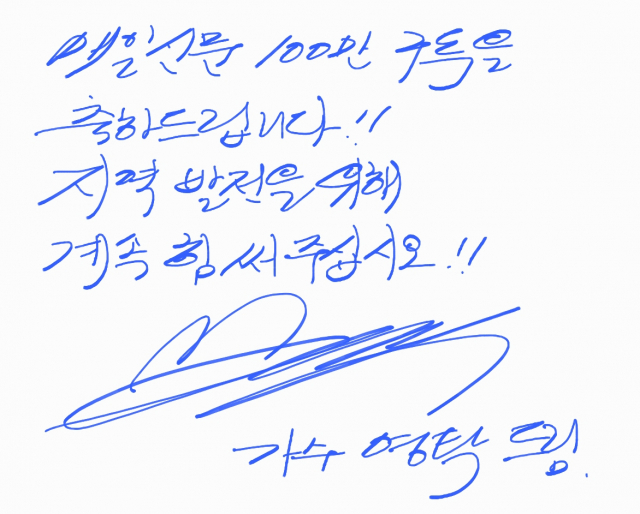 매일신문 100만 구독을
축하드립니다!!
지역 발전을 위해
계속 힘써주십시오!!
가수 영탁 드림.